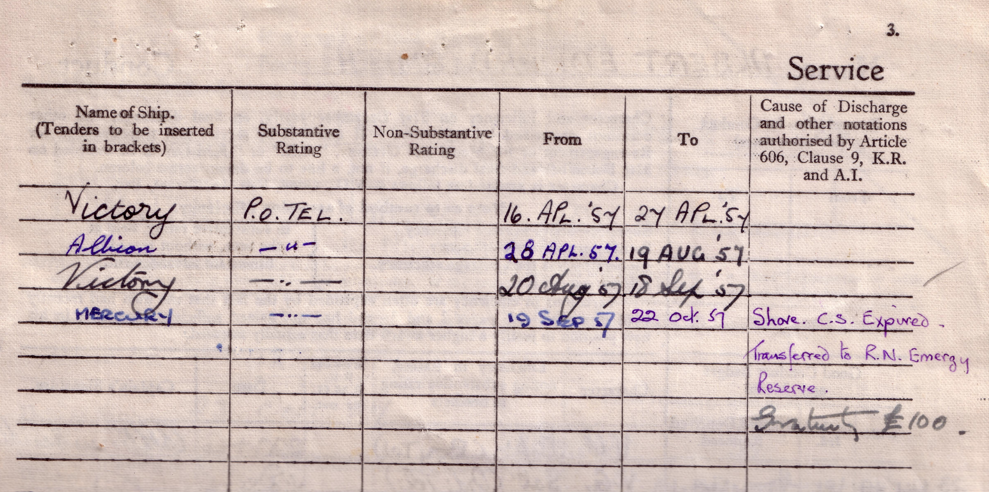 3.
Service
Name of Ship.
(Tenders to be inserted
in brackets)
Substantive
Rating
Non-Substantive
Rating
From
To
Cause of Discharge
and other notations
authorised by Article
606, Clause 9, K.R.
and A.I.
Victory P.O. TEL. 16. APL. '57 27 APL. '57
Albion —"— 28 APL. 57. 19 AUG '57
Victory —"— 20 Aug '57 18 Sep '57
MERCURY —"— 19 SEP 57 22 Oct. 57 Shore. C.S. Expired.
Transferred to R.N. Emergy
Reserve.
Gratuity £100.